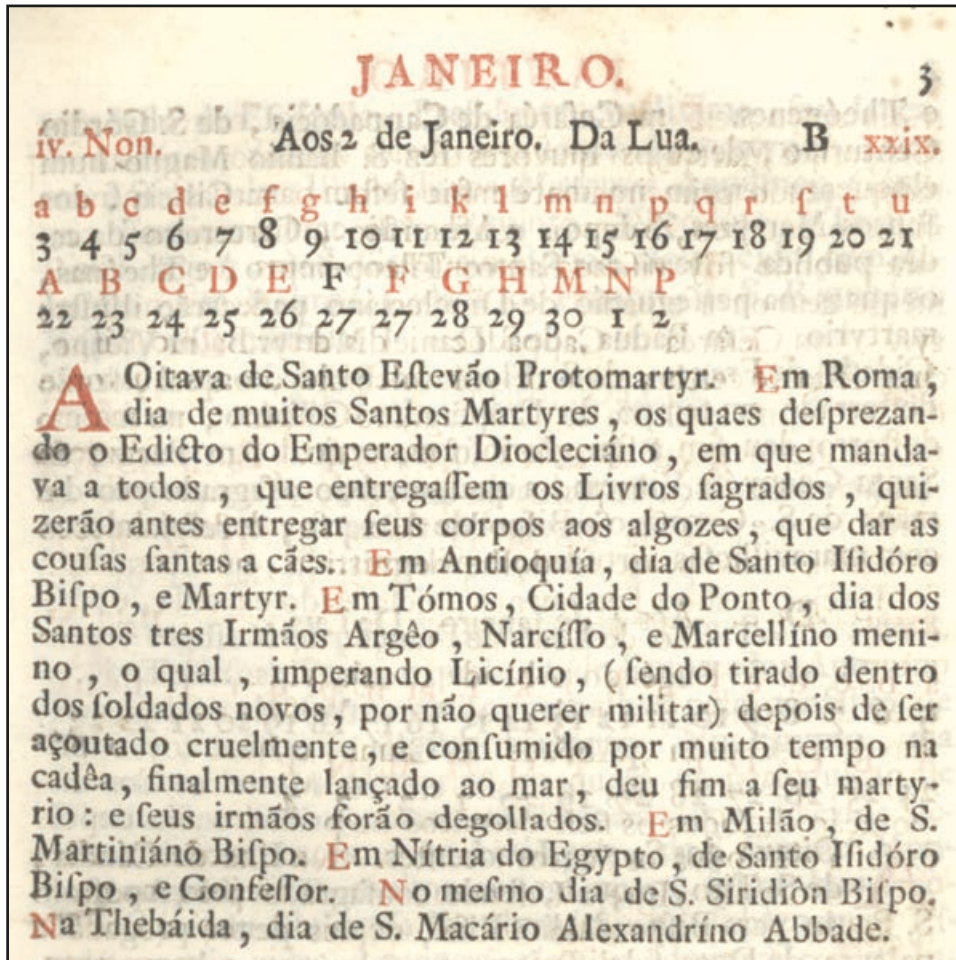 JANEIRO. 3
iv. Non. Aos 2 de Janeiro. Da Lua. B xxix.
a b c d e f g h i k l m n p q r ſ t u
3 4 5 6 7 8 9 10 11 12 13 14 15 16 17 18 19 20 21
A B C D E F F G H M N P
22 23 24 25 26 27 27 28 29 30 1 2
A Oitava de Santo Eſtevão Protomartyr. Em Roma,
dia de muitos Santos Martyres, os quaes deſprezan-
do o Edicto do Emperador Diocleciáno, em que manda-
va a todos, que entregaſſem os Livros ſagrados, qui-
zerão antes entregar ſeus corpos aos algozes, que dar as
couſas ſantas a cães. Em Antioquía, dia de Santo Iſidóro
Biſpo, e Martyr. Em Tómos, Cidade do Ponto, dia dos
Santos tres Irmãos Argêo, Narcíſſo, e Marcellíno meni-
no, o qual, imperando Licínio, (ſendo tirado dentro
dos ſoldados novos, por não querer militar) depois de ſer
açoutado cruelmente, e conſumido por muito tempo na
cadêa, finalmente lançado ao mar, deu fim a ſeu marty-
rio: e ſeus irmãos forão degollados. Em Milão, de S.
Martiniáno Biſpo. Em Nítria do Egypto, de Santo Iſidóro
Biſpo, e Confeſſor. No meſmo dia de S. Siridiôn Biſpo.
Na Thebáida, dia de S. Macário Alexandríno Abbade.